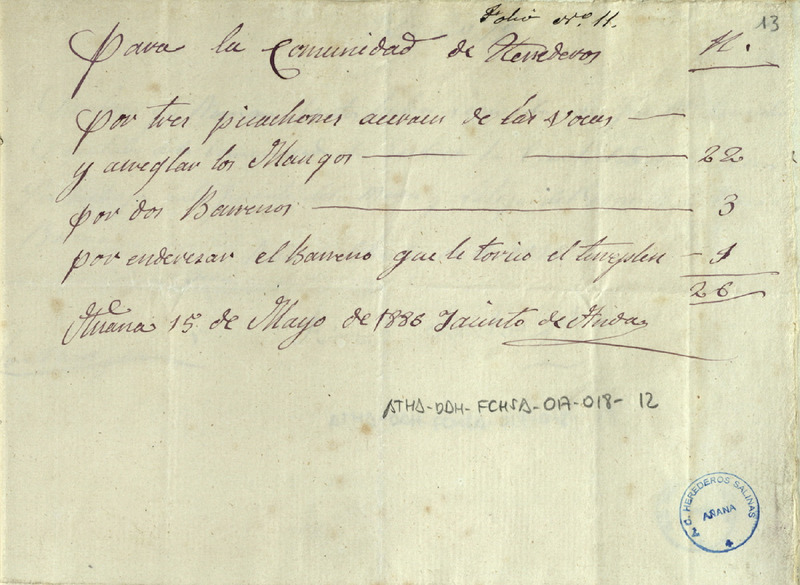 Folio nº 11.
13
Para la Comunidad de Herederos R.
por tres picachones aceracen de las vocas —
y arreglar los Mangos — 22
por dos Barrenos — 3
por enderesar el Barreno que le torcio el tureplen — 1
26
Añana 15 de Mayo de 1886 Jacinto de Anda
ATHA-DAH-FCHSA-017-018-12
A. C. HEREDEROS SALINAS
AÑANA